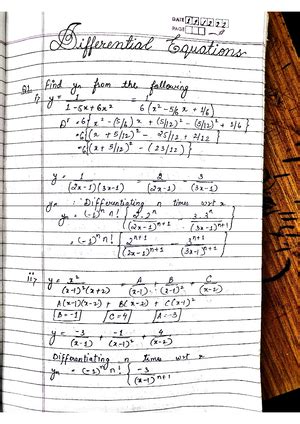 DATE
PAGE
Differential Equations
Q1 Find yn from the following
i) y = 1 / (1-5x+6x²) = 1 / 6(x²-5/6x+1/6)
= 6{x² - (5/6)x + (5/12)² - (5/12)² + 1/6}
= 6{(x + 5/12)² - 25/12 + 2/12
= 6{(x + 5/12)² - (23/12)}
y = 1 / (2x-1)(3x-1) = 2 / (2x-1) - 3 / (3x-1)
yn : Differentiating n times wrt x
yn = (-1)ⁿ n! { 2·2ⁿ / (2x-1)ⁿ⁺¹ - 3·3ⁿ / (3x-1)ⁿ⁺¹ }
= (-1)ⁿ n! { 2ⁿ⁺¹ / (2x-1)ⁿ⁺¹ - 3ⁿ⁺¹ / (3x-1)ⁿ⁺¹ }
ii) y = x² / (x-1)²(x+2) = A / (x-1) + B / (x-1)² + C / (x-2)
A(x-1)(x-2) + B(x-2) + C(x-1)²
B = -1 C = 4 A = -3
y = -3 / (x-1) + -1 / (x-1)² + 4 / (x-2)
Differentiating n times wrt x
yn = (-1)ⁿ n! { -3 / (x-1)ⁿ⁺¹